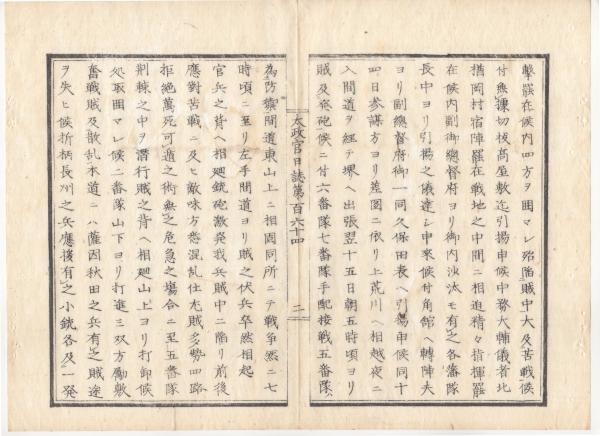 撃罷在候内四方ヲ囲マレ殆陥賊中大及苦戦候
付無據切抜高屋敷迄引揚申候中務大輔儀者北
楢岡村宿陣罷在戦地之中間ニ相進精々指揮罷
在候内副御總督府ヨリ御内沙汰モ有之各藩隊
長中ヨリ引揚之儀達シ申来候付角館ヘ轉陣夫
ヨリ副總督府御一同久保田表ヘ引揚申候同十
四日参謀方ヨリ差図ニ依リ上荒川ヘ相越夜ニ
入間道ヲ経テ堺ヘ出張翌十五日朝五時頃ヨリ
賊及発砲候ニ付六番隊七番隊手配接戦五番隊ハ
太政官日誌第百六十四
二
為防禦間道東山上ニ相固同所ニテ戦争然ニ七
時頃ニ至リ左手間道ヨリ賊之伏兵卒然相起
官兵之背ヘ相廻銃砲激発我兵賊中ニ陥リ前後
應對苦戦ニ及ヒ敵味方悉混乱仕尤賊多勢四路
拒絶萬死可遁之術無之危急之場合ニ至五番隊
荊棘之中ヲ潜行賊之背ヘ相廻山上ヨリ打卸候
処取囲マレ候二番隊山下ヨリ打進三双方勵敷
奮戦賊及散乱本道ニハ薩因秋田之兵有之賊途
ヲ失ヒ候折柄長州之兵應援有之小銃各及一発